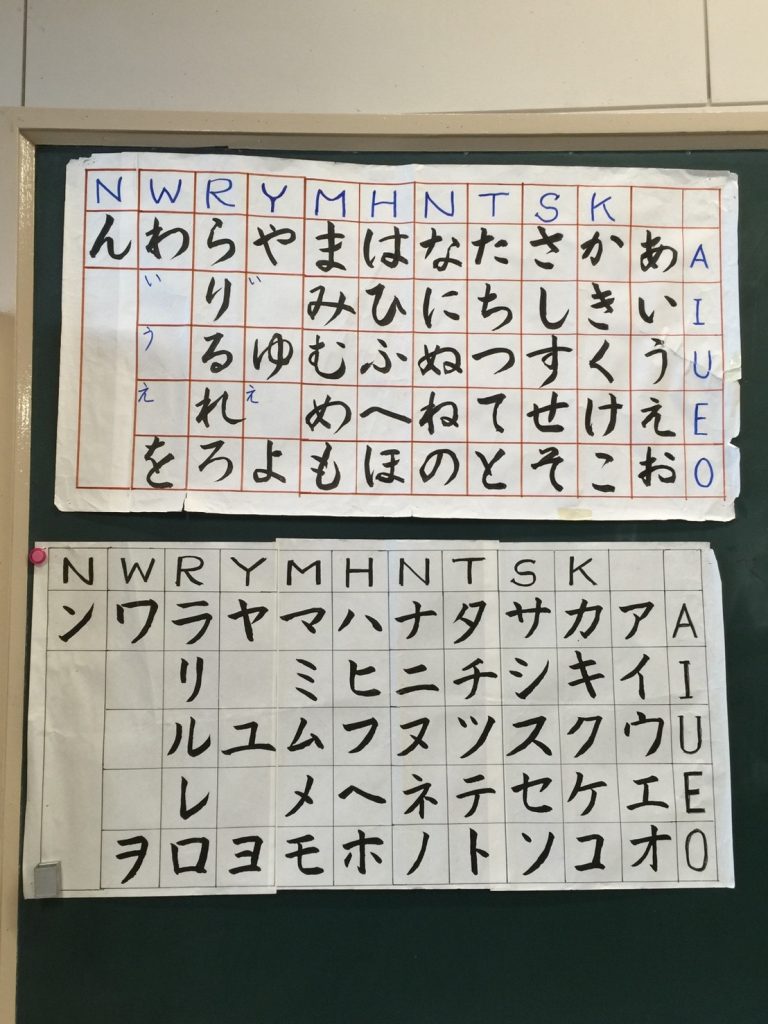 N W R Y M H N T S K
ん わ ら や ま は な た さ か あ A
い り い み ひ に ち し き い I
う る ゆ む ふ ぬ つ す く う U
え れ え め へ ね て せ け え E
を ろ よ も ほ の と そ こ お O
N W R Y M H N T S K
ン ワ ラ ヤ マ ハ ナ タ サ カ ア A
リ ミ ヒ ニ チ シ キ イ I
ル ユ ム フ ヌ ツ ス ク ウ U
レ メ ヘ ネ テ セ ケ エ E
ヲ ロ ヨ モ ホ ノ ト ソ コ オ O